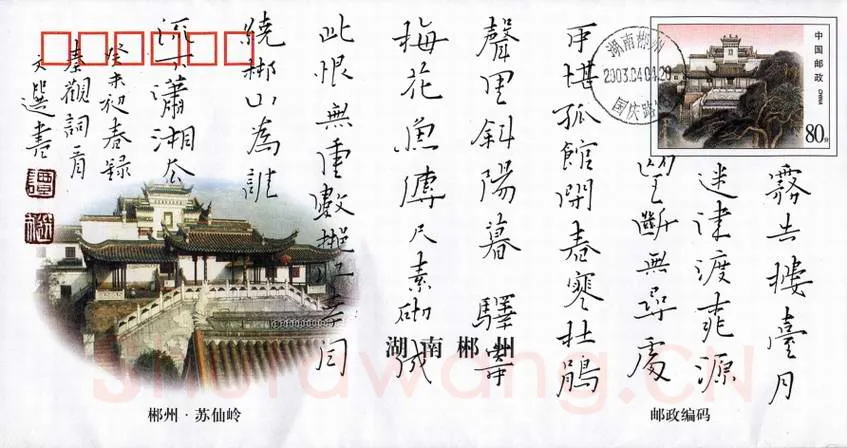 霧失樓臺月
迷津渡桃源
望斷無尋處
可堪孤館閉春寒杜鵑
聲里斜陽暮 驛寄
梅花魚傳尺素砌成
此恨無重數郴江幸自
繞郴山為誰
流下瀟湘去
癸未初春録
秦觀詞一首
文選書
中国邮政 CHINA
80分
湖南郴州
2003.04.04.20
国庆路
湖南郴州
郴州·苏仙岭
邮政编码
shufawang.CN